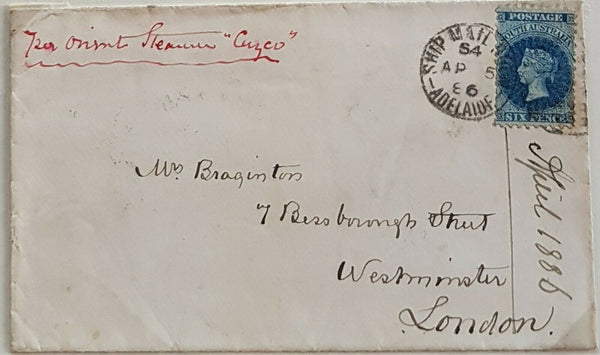 per Orient Steamer "Cuzco"
SHIP MAIL
54
AP 5
86
ADELAIDE
POSTAGE
SOUTH AUSTRALIA
SIX PENCE
Mrs Braginton
7 Bessborough Street
Westminster
London.
April 1886